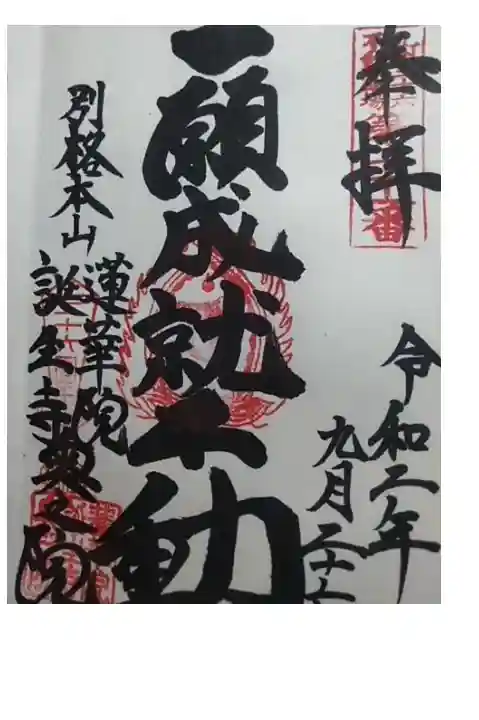 奉拝
令和二年
九月二十
一願成就不動
別格本山
蓮華院
誕生寺奥之院
番